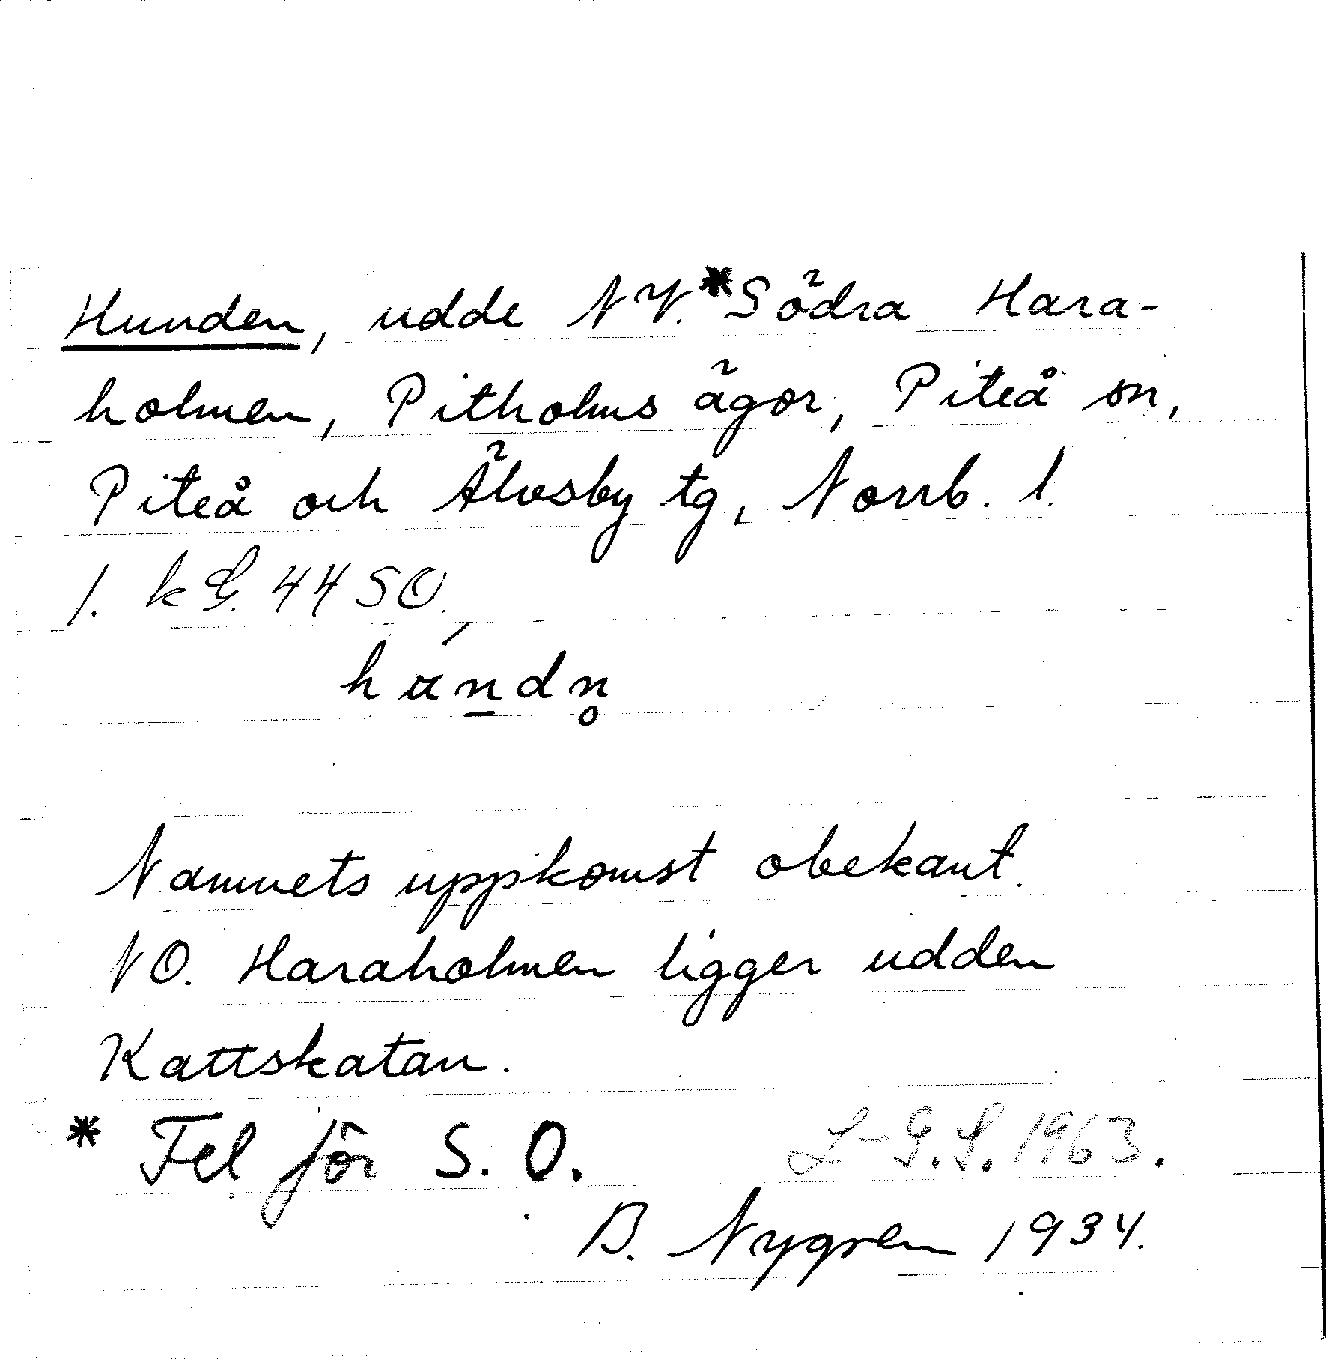 Hunden, udde NV.* Södra Hara-
holmen, Pitholms ägor, Piteå sn,
Piteå och Älvsby tg, Norrb. l.
1. k G. 4450.
Namnets uppkomst obekant.
NO. Haraholmen ligger udden
Kattskatan.
* Fel för S. O. L-G.S. 1963.
B. Nygren 1934.